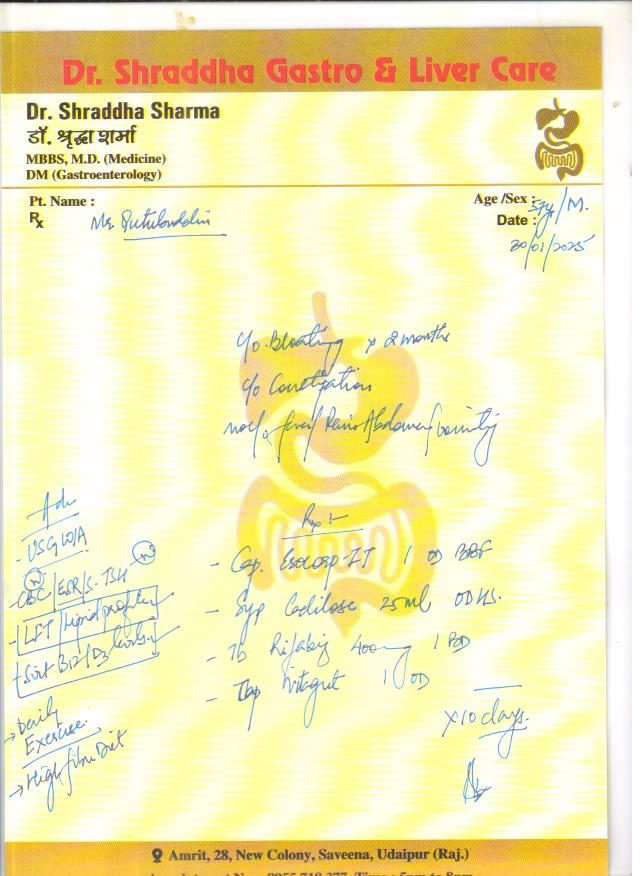 Dr. Shraddha Gastro & Liver Care
Dr. Shraddha Sharma
डॉ. श्रृद्धा शर्मा
MBBS, M.D. (Medicine)
DM (Gastroenterology)
Pt. Name :
Age /Sex : 57y/M.
Rx
Mr Qutubuddin
Date : 20/01/2025
c/o Bloating x 2 months
c/o Constipation
no c/o fever/Pain Abdomen/vomiting
Adv
- USG W/A
- CBC/ESR/S. TSH
- LFT/Lipid profile
B12/D3 levels
→ Daily Exercise
→ High fibre Diet
Rx :-
- Cap. 1 OD BBF
- Syp 25ml OD HS.
- Tb 400mg 1 BD
- 1 OD
x10 days.
Amrit, 28, New Colony, Saveena, Udaipur (Raj.)